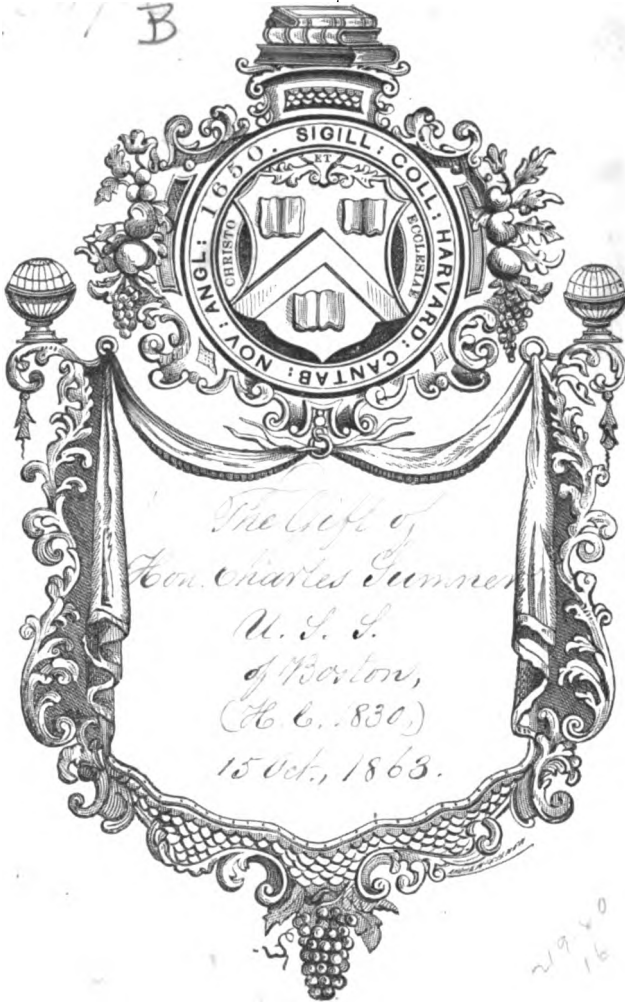 B
SIGILL: COLL: HARVARD: CANTAB: NOV: ANGL: 1650.
CHRISTO
ET
ECCLESIAE
The Gift of
Hon. Charles Sumner
U. S. S.
of Boston,
(H. C. 1830,)
15 Oct., 1863.